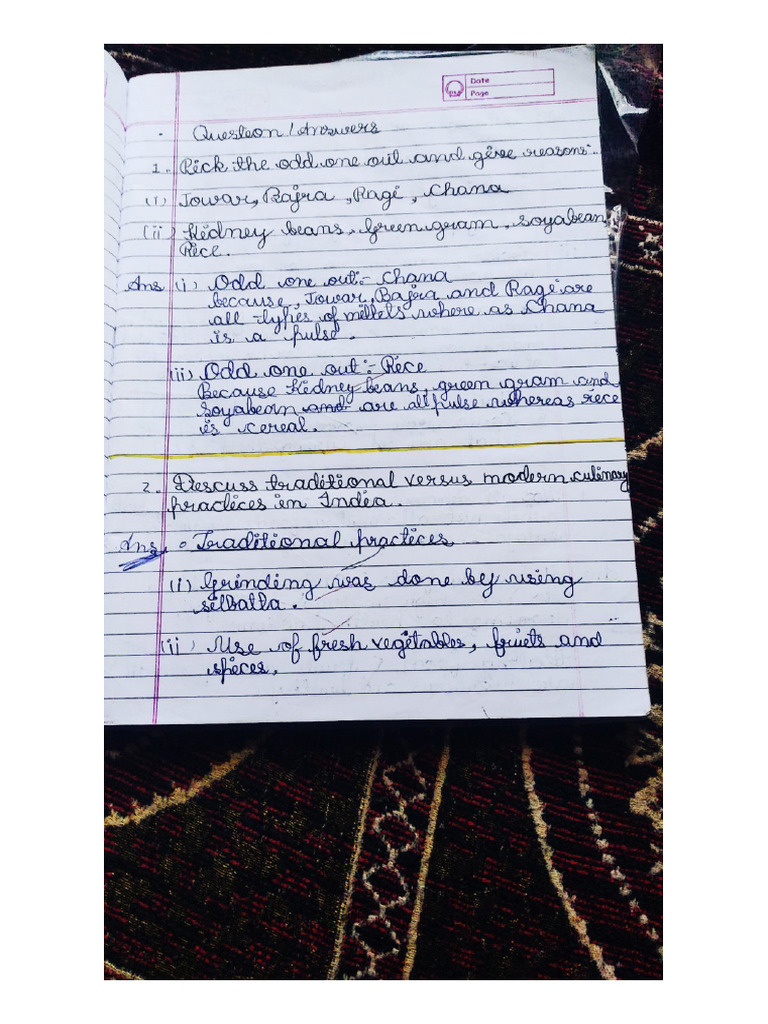 Date
Page
Question / Answers
1. Pick the odd one out and give reasons:-
(i) Jowar, Bajra, Ragi, Chana
(ii) Kidney beans, Green gram, Soyabean,
Rice.
Ans (i) Odd one out:- Chana
because, Jowar, Bajra and Ragi are
all types of millets where as Chana
is a pulse.
(ii) Odd one out:- Rice
Because Kidney beans, green gram and
soyabean and are all pulse whereas rice
is cereal.
2. Discuss traditional versus modern culinary
practices in India.
Ans. Traditional practices
(i) Grinding was done by using
silbatta.
(ii) Use of fresh vegetables, fruits and
spices.